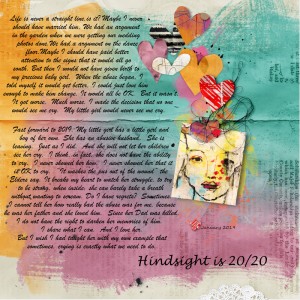 Life is never a straight line, is it? Maybe I never
should have married him. We had an argument
in the garden when we were getting our wedding
photos done. We had a argument on the dance
floor. Maybe I should have paid better
attention to the signs that it would all go
south. But then I would not have given birth to
my precious baby girl. When the abuse began, I
told myself it would get better, I could just love him
enough to make him change. It would all be OK. But it wasn't.
It got worse. Much worse. I made the decision that no one
would see me cry. My little girl would never see me cry.
Fast forward to 2019. My little girl has a little girl and
boy of her own. She has an abusive husband. She is
leaving. Just as I did. And she will not let her children
see her cry. I think, so fast, she does not have the ability
to cry. I never showed her how. I never showed her that it
is OK to cry. "It washes the pus out of the wound" the
Elders say. It breaks my heart to watch her struggle, to try
to be strong, when inside, she can barely take a breath
without wanting to scream. Do I have regrets? Sometimes
I cannot tell her how really bad the abuse was for me, because
he was her father and she loved him. Since her Dad was killed,
I do not have the right to darken her memories of him.
I share what I can. And I love her.
But I wish I had taught her with my own example that
sometimes, crying is exactly what we need to do.
2019
Hindsight is 20/20